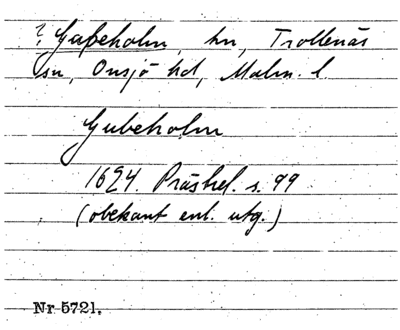 ? Gapeholm, hn, Trollenäs
sn, Onsjö hd, Malm. l.
Gubeholm
1624 Prästrel. s. 99
(obekant enl. utg.)
Nr 5721.